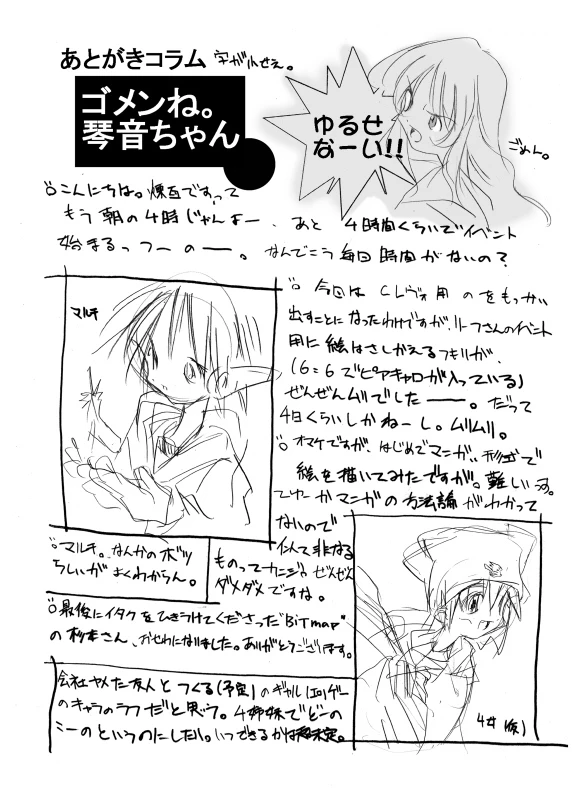 あとがきコラム 字が小せぇ。
ゴメンね。
琴音ちゃん
ゆるせ
なーい!!
ごめん。
こんにちは。煉瓦ですって
もう朝の4時じゃんよー、あと 4時間くらいでイベント
始まるっつーのー。なんでこう毎回時間がないの?
マルチ
今回はCレヴォ用のをもっかい
出すことになったわけですが、リーフさんのイベント
用に絵はさしかえるフキリが、
(6=6でピアキャロが入っている)
ぜんぜんムリでしたーー。だって
4日くらいしかねーし。ムリムリ。
オマケですが、はじめてマンガ形式で
絵を描いてみたですが。難しい
てゆーかマンガの方法論がわかって
ないので
似て非なる
ものってカンジ。ぜんぜん
ダメダメですな。
マルチ。なんかのボツ
らしいがよくわからん。
最後にイタクをひきうけてくださった"BiTmap"
の杉本さん、おせわになりました。ありがとうございます。
会社ヤメた友人とつくる(予定)のギャル(エロ)ゲー
のキャラのラフだと思う。4姉妹でどーの
こーのというのにしたい。いつできるかは未定。
4女(仮)